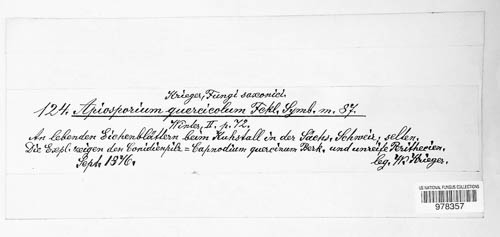 Krieger, Fungi saxonici.
124. Apiosporium quercicolum Fckl. Symb. m. 87.
Winter, II. p. 72.
An lebenden Eichenblättern beim Kuhstall in der Sächs. Schweiz, selten.
Die Expl. zeigen den Conidienpilz = Capnodium quercinum Berk. und unreife Perithecien.
Sept. 1876. leg. W. Krieger.
US NATIONAL FUNGUS COLLECTIONS
978357